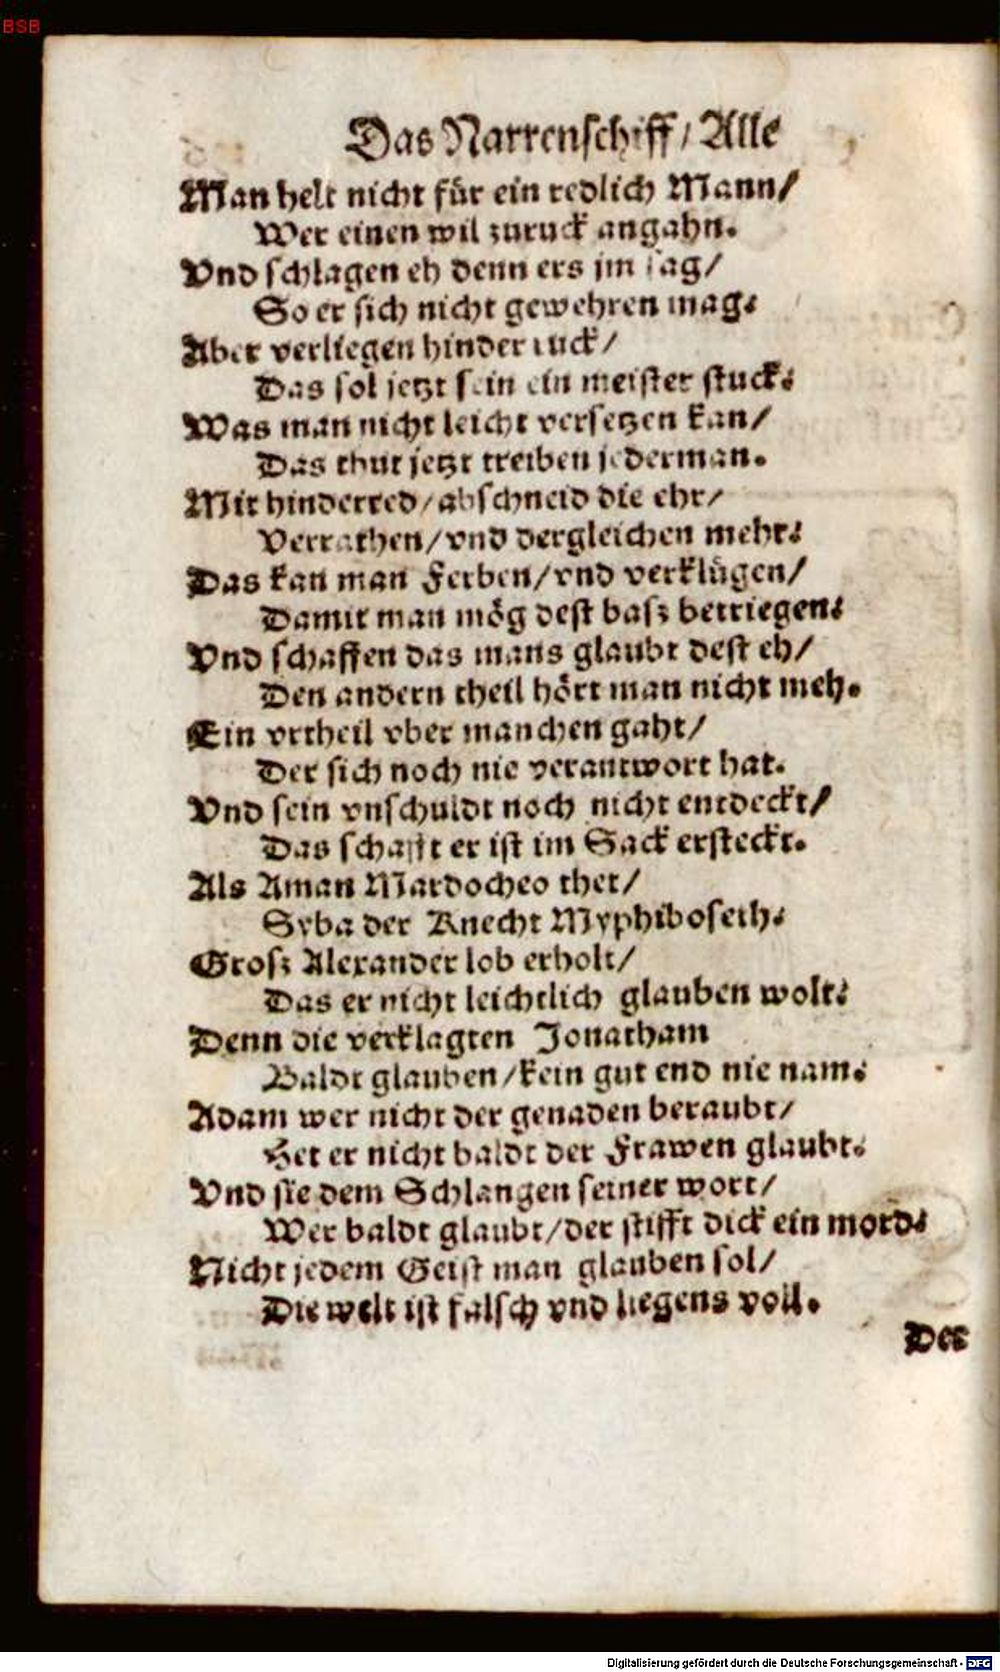 BSB
Das Narrenschiff / Alle
Man helt nicht für ein redlich Mann /
Wer einen wil zuruck angahn.
Vnd schlagen eh denn ers jm sag /
So er sich nicht gewehren mag:
Aber verliegen hinder ruck /
Das sol jetzt sein ein meister stuck:
Was man nicht leicht versetzen kan /
Das thut jetzt treiben jederman.
Mit hinderred / abschneid die ehr /
Verrathen / vnd dergleichen mehr:
Das kan man Ferben / vnd verklügen /
Damit man mög dest basz betriegen:
Vnd schaffen das mans glaubt dest eh /
Den andern theil hört man nicht meh.
Ein vrtheil vber manchen gaht /
Der sich noch nie verantwort hat.
Vnd sein vnschuldt noch nicht entdeckt /
Das schafft er ist im Sack ersteckt.
Als Aman Mardocheo thet /
Syba der Knecht Myphiboseth:
Grosz Alexander lob erholt /
Das er nicht leichtlich glauben wolt:
Denn die verklagten Jonatham
Baldt glauben / kein gut end nie nam:
Adam wer nicht der genaden beraubt /
Het er nicht baldt der Frawen glaubt:
Vnd sie dem Schlangen seiner wort /
Wer baldt glaubt / der stifft dick ein mord:
Nicht jedem Geist man glauben sol /
Die welt ist falsch vnd liegens voll.
Der
Digitalisierung gefördert durch die Deutsche Forschungsgemeinschaft - DFG